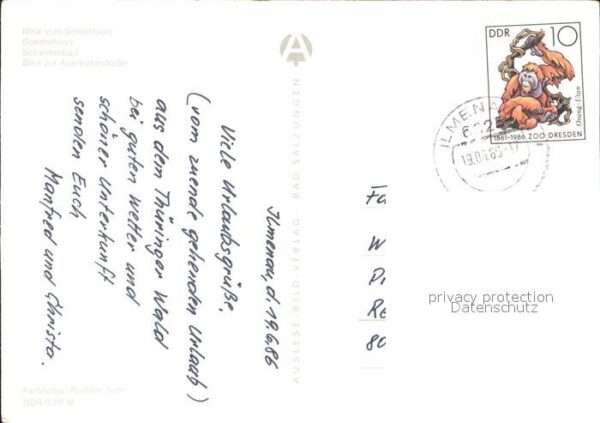 Blick vom Schloßherd
Goethehaus
Schwimmbad
Blick zur Ausmannstraße
Ilmenau, d. 19.6.86
Viele Urlaubsgrüße,
(vom zuende gehenden Urlaub)
aus dem Thüringer Wald
bei guten Wetter und
schöner Unterkunft
senden Euch
Manfred und Christa.
Farbfotos: Richter, Suhl
A
AUSLESE-BILD-VERLAG · BAD SALZUNGEN
DDR 10
Orang-Utan
1861-1986, ZOO DRESDEN
ILMENA
Fa
W
Re
80
privacy protection
Datenschutz